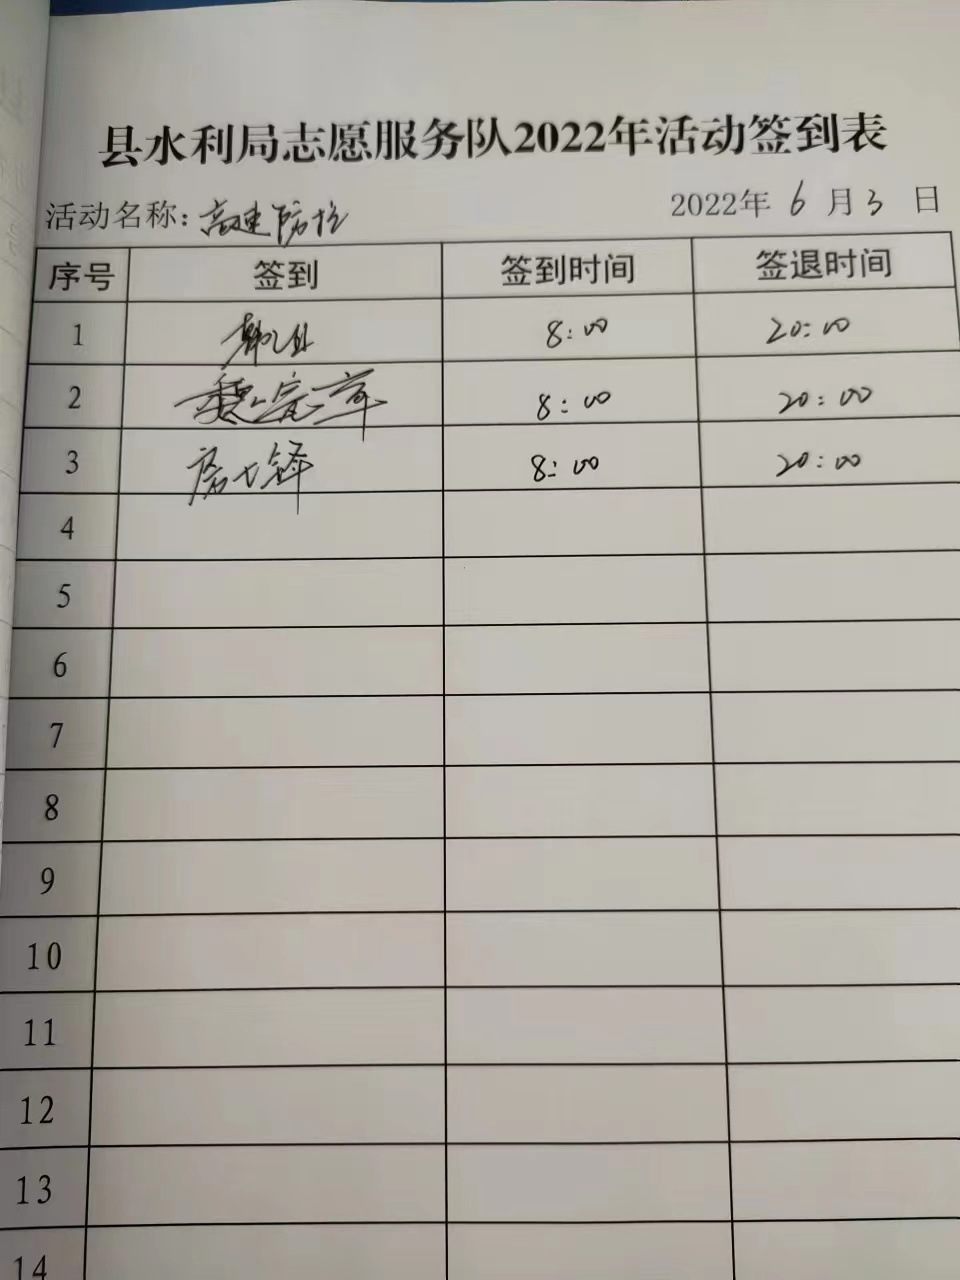 县水利局志愿服务队2022年活动签到表
活动名称：高速防控 2022年 6 月 3 日
序号 签到 签到时间 签退时间
1 8:00 20:00
2 8:00 20:00
3 8:00 20:00
4
5
6
7
8
9
10
11
12
13
14